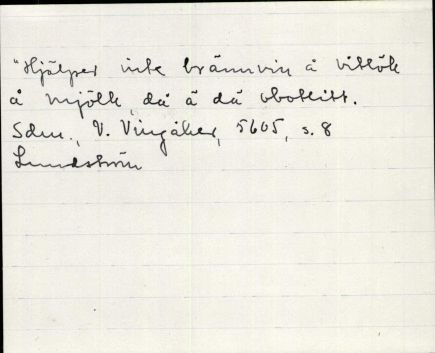 "Hjälper inte brännvin å vitlök
å mjölk, då ä dä obotlitt.
Sdm., V. Vingåker, 5605, s. 8
Lundström